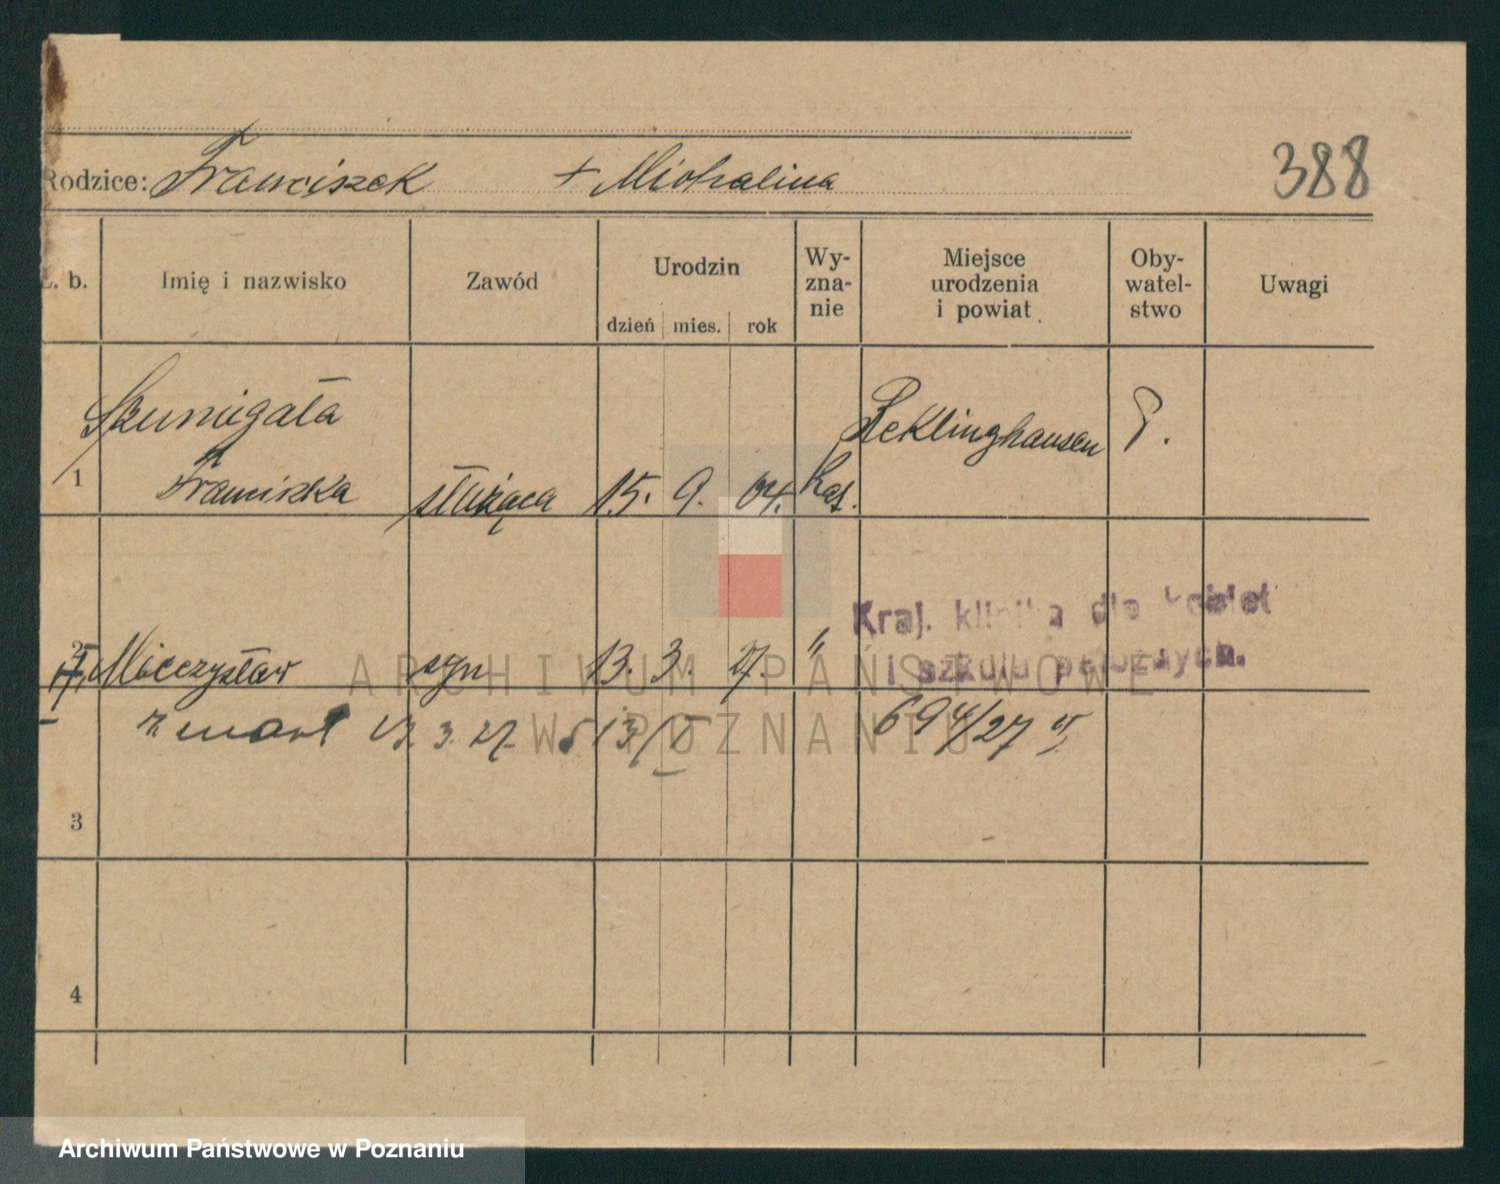 Rodzice: Franciszek + Michalina
388
L. b. Imię i nazwisko Zawód Urodzin dzień mies. rok Wy-zna-nie Miejsce urodzenia i powiat Oby-watel-stwo Uwagi
Skumigała Reklinghausen P.
1 Franciszka służąca 15. 9. 04. kat.
Kraj. klinika dla kobiet
i szkoła położnych.
2 Mieczysław syn 13. 3. 27. "
zmarł 3. 27. 694/27
3
4
ARCHIWUM PAŃSTWOWE
W POZNANIU
Archiwum Państwowe w Poznaniu